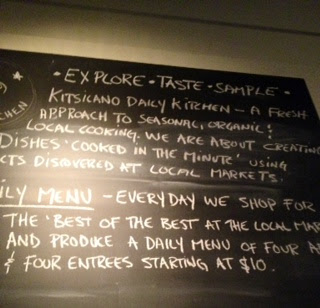 KITCHEN
• EXPLORE • TASTE • SAMPLE •
KITSICANO DAILY KITCHEN – A FRESH
APPROACH TO SEASONAL, ORGANIC &
LOCAL COOKING. WE ARE ABOUT CREATING
DISHES 'COOKED IN THE MINUTE' USING
CTS DISCOVERED AT LOCAL MARKETS.
ILY MENU – EVERYDAY WE SHOP FOR
THE 'BEST OF THE BEST' AT THE LOCAL MAR
AND PRODUCE A DAILY MENU OF FOUR AP
& FOUR ENTREES STARTING AT $10.